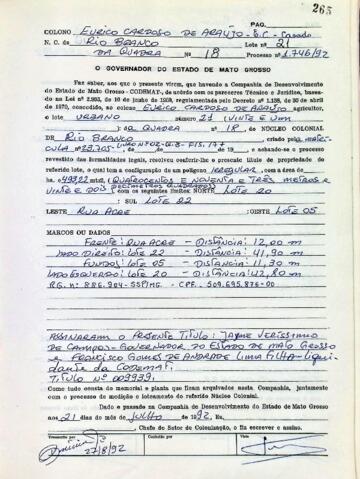 265
PAG.
COLONO EURICO CARDOSO DE ARAÚJO - E.C. - Casado
N. C. de RIO BRANCO Lote nº 21
DA QUADRA Nº 18 Processo nº 1.746/92
O GOVERNADOR DO ESTADO DE MATO GROSSO
Faz saber, aos que o presente virem, que havendo a Companhia de Desenvolvimento
do Estado de Mato Grosso - CODEMAT, de acordo com os pareceres Técnico e Jurídico, basea-
do na Lei nº
de 1970, concedido, ao colono EURICO CARDOSO DE ARAÚJO agricultor,
o lote URBANO nº 21 (VINTE E UM
da QUADRA nº 18, DE NÚCLEO COLONIAL
DE RIO BRANCO criado pela
CULA nº 23.705 - LIVRO Nº 02 - de 19 , e achando-se o processo
revestido das formalidades legais, resolveu conferir-lhe o presente título de propriedade do
referido lote, o qual tem a configuração de um polígono IRREGULAR, com a área de
(QUATROCENTOS E NOVENTA E TRÊS METROS e
VINTE E DOIS DECÍMETROS QUADRADOS) com os seguintes limites: NORTE LOTE 20
: SUL LOTE 22
LESTE RUA ACRE :OESTE LOTE 05
MARCOS OU DADOS
FRENTE: RUA ACRE - DISTÂNCIA: 12,00 m
LADO DIREITO: LOTE 22 - DISTÂNCIA: 41,90 m
FUNDOS: LOTE 05 - DISTÂNCIA: 11,30 m
LADO ESQUERDO: LOTE 20 - DISTÂNCIA: 42,80 m
R.G. nº: 886.904-SSP/MG. - CPF.: 509.695.876-00
ASSINARAM O PRESENTE TÍTULO: JAYME VERÍSSIMO
DE CAMPOS - GOVERNADOR DO ESTADO DE MATO GROSSO
e FRANCISCO GOMES DE ANDRADE LIMA FILHO - Liqui-
dante da CODEMAT.
TÍTULO Nº 003939.
Como tudo consta do memorial e planta que ficam arquivados nesta Companhia, juntamente
com o processo de medição e loteamento do referido Núcleo Colonial.
Dado e passado na Companhia de Desenvolvimento do Estado de Mato Grosso
aos 21 dias do mês de Julho de 1992, Eu,
, Chefe do Setor de Colonização, o fiz escrever e assino.
Transcrito por
Conferido por
Visto
27/8/92